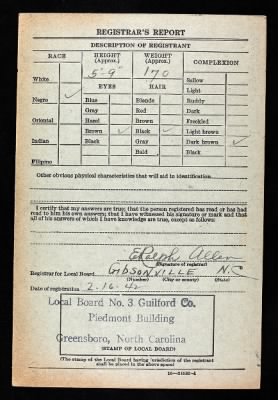 REGISTRAR'S REPORT
DESCRIPTION OF REGISTRANT
RACE HEIGHT (Approx.) WEIGHT (Approx.) COMPLEXION
White 5-9" 170 Sallow
EYES HAIR Light
Negro ✓ Blue Blonde Ruddy
Gray Red Dark
Oriental Hazel Brown Freckled
Brown ✓ Black ✓ Light brown
Indian Black Gray Dark brown ✓
Bald Black
Filipino
Other obvious physical characteristics that will aid in identification
I certify that my answers are true; that the person registered has read or has had
read to him his own answers; that I have witnessed his signature or mark and that
all of his answers of which I have knowledge are true, except as follows:
Ralph Allen
(Signature of registrar)
Registrar for Local Board GIBSONVILLE N.C
(Number) (City or county) (State)
Date of registration 2-16-42
Local Board No. 3 Guilford Co.
Piedmont Building
Greensboro, North Carolina
(STAMP OF LOCAL BOARD)
(The stamp of the Local Board having jurisdiction of the registrant
shall be placed in the above space)